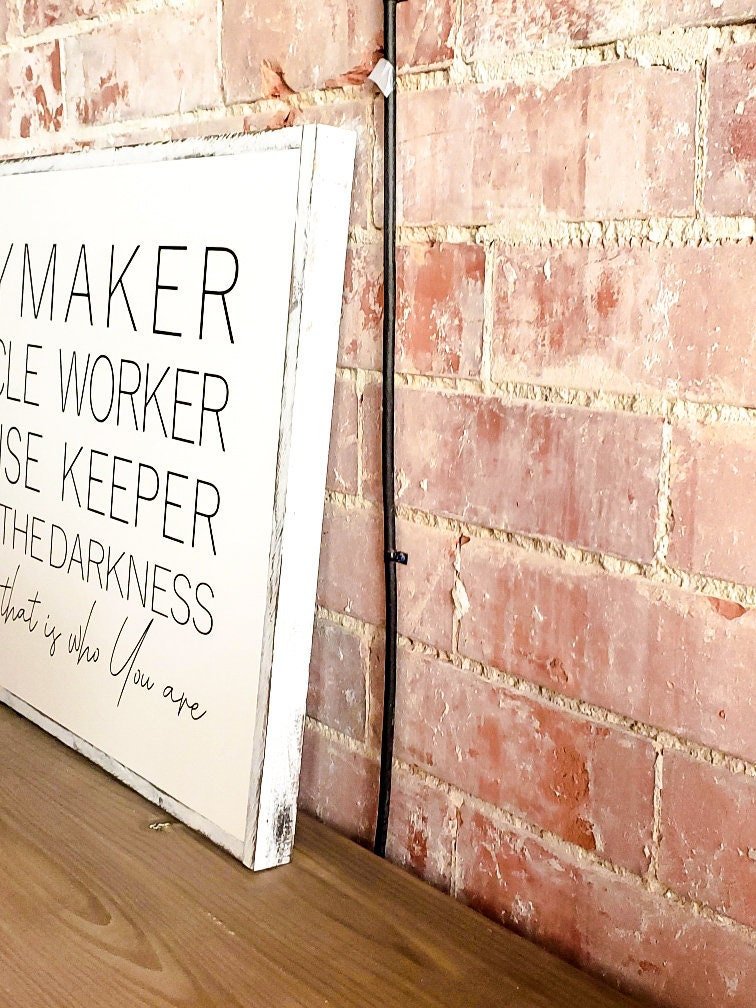 YMAKER
CLE WORKER
ISE KEEPER
THE DARKNESS
that is who You are